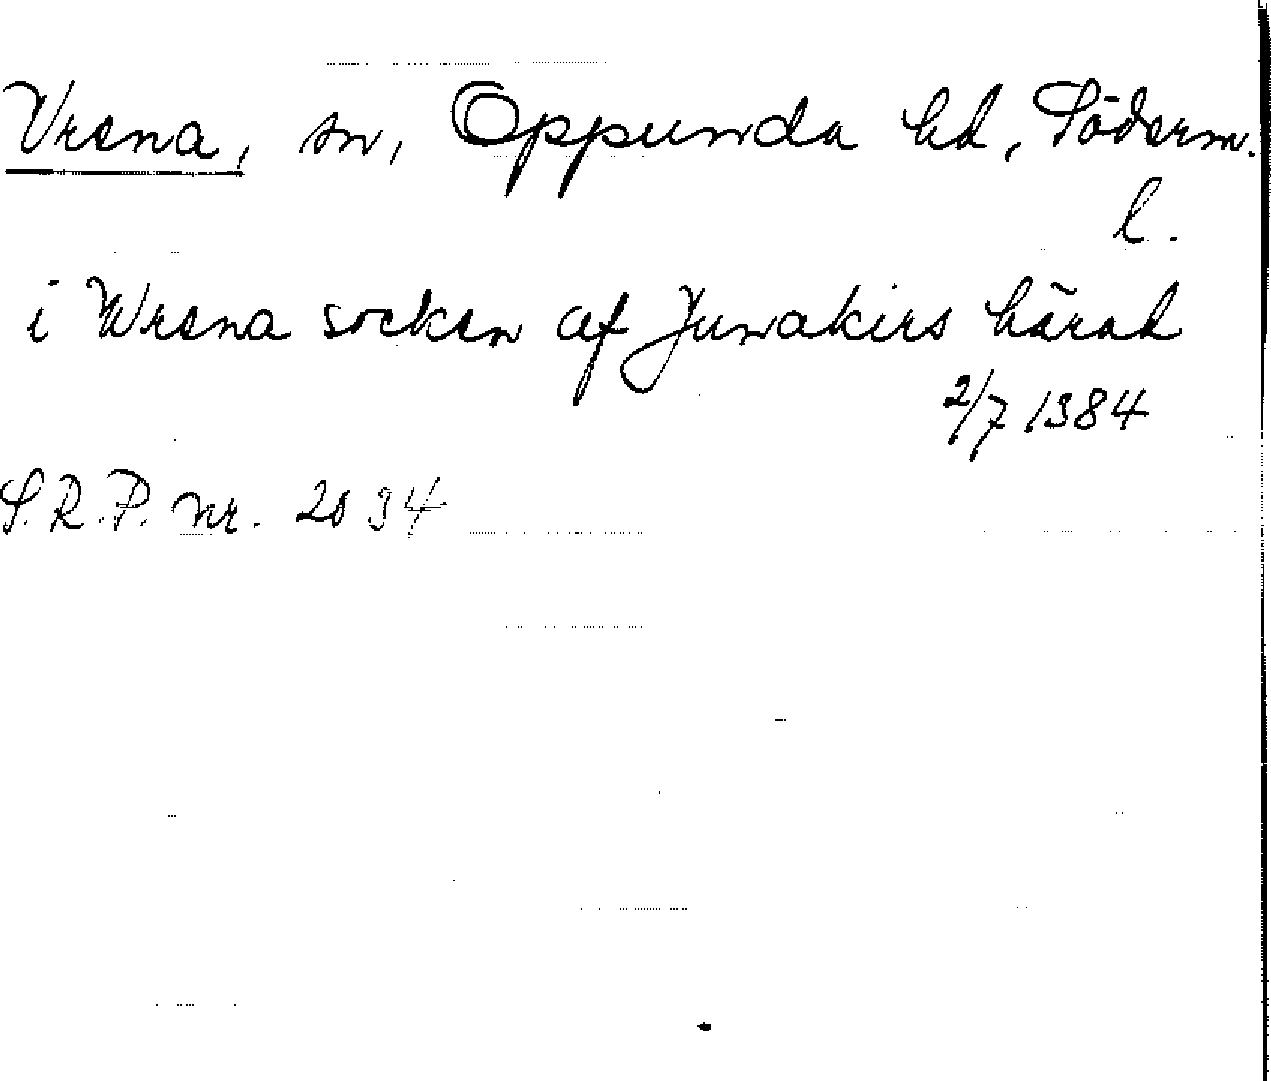 Vrena, sn, Oppunda hd, Söderm.
l.
i Wrena socken af Junakirs härad
2/7 1384
S.R.P. nr. 2034